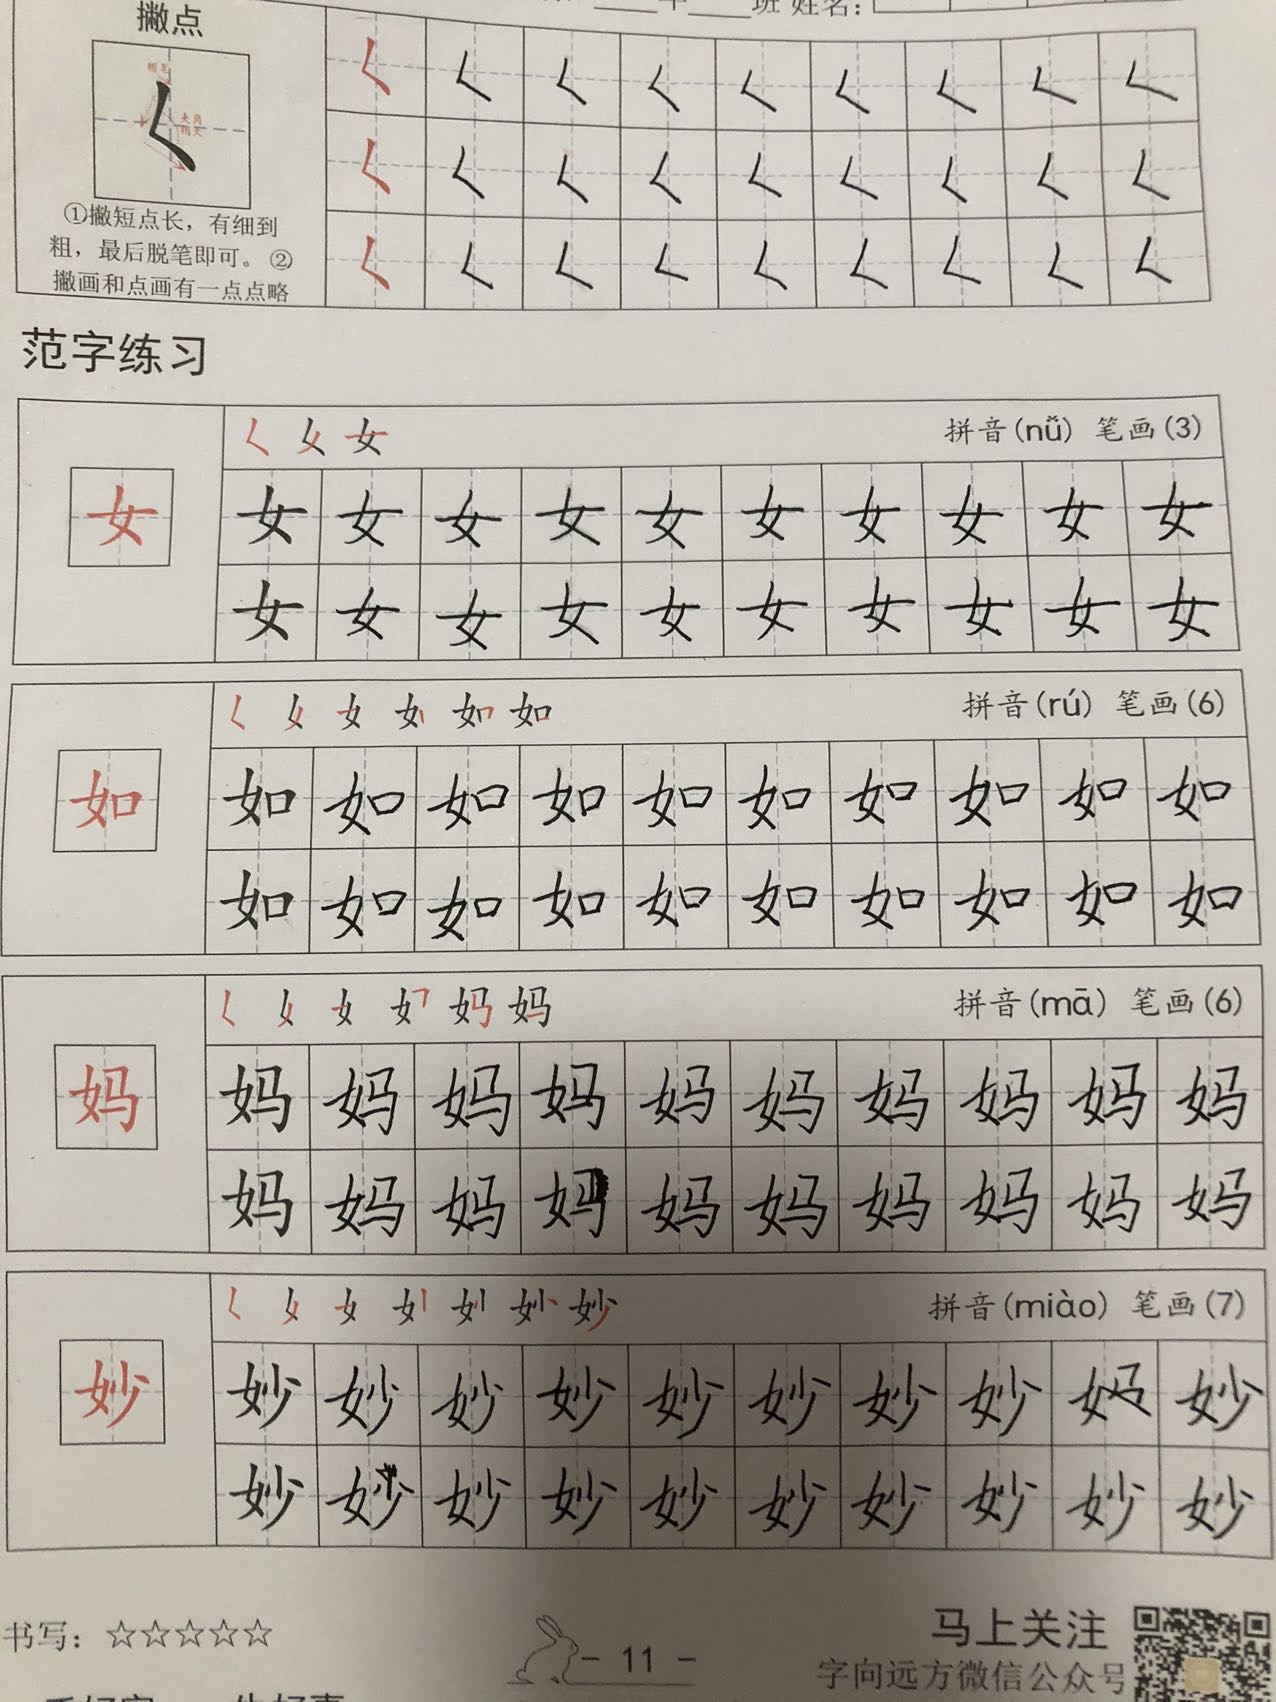 撇点
班 姓名：
①撇短点长，有细到
粗，最后脱笔即可。②
撇画和点画有一点点略
范字练习
拼音(nǚ) 笔画(3)
女
女 女 女 女 女 女 女 女 女 女
女 女 女 女 女 女 女 女 女 女
如 拼音(rú) 笔画(6)
如
如 如 如 如 如 如 如 如 如 如
如 如 如 如 如 如 如 如 如 如
妈 拼音(mā) 笔画(6)
妈
妈 妈 妈 妈 妈 妈 妈 妈 妈 妈
妈 妈 妈 妈 妈 妈 妈 妈 妈 妈
妙 拼音(miào) 笔画(7)
妙
妙 妙 妙 妙 妙 妙 妙 妙 妙
妙 妙 妙 妙 妙 妙 妙 妙 妙 妙
书写：☆☆☆☆☆
- 11 -
马上关注
字向远方微信公众号